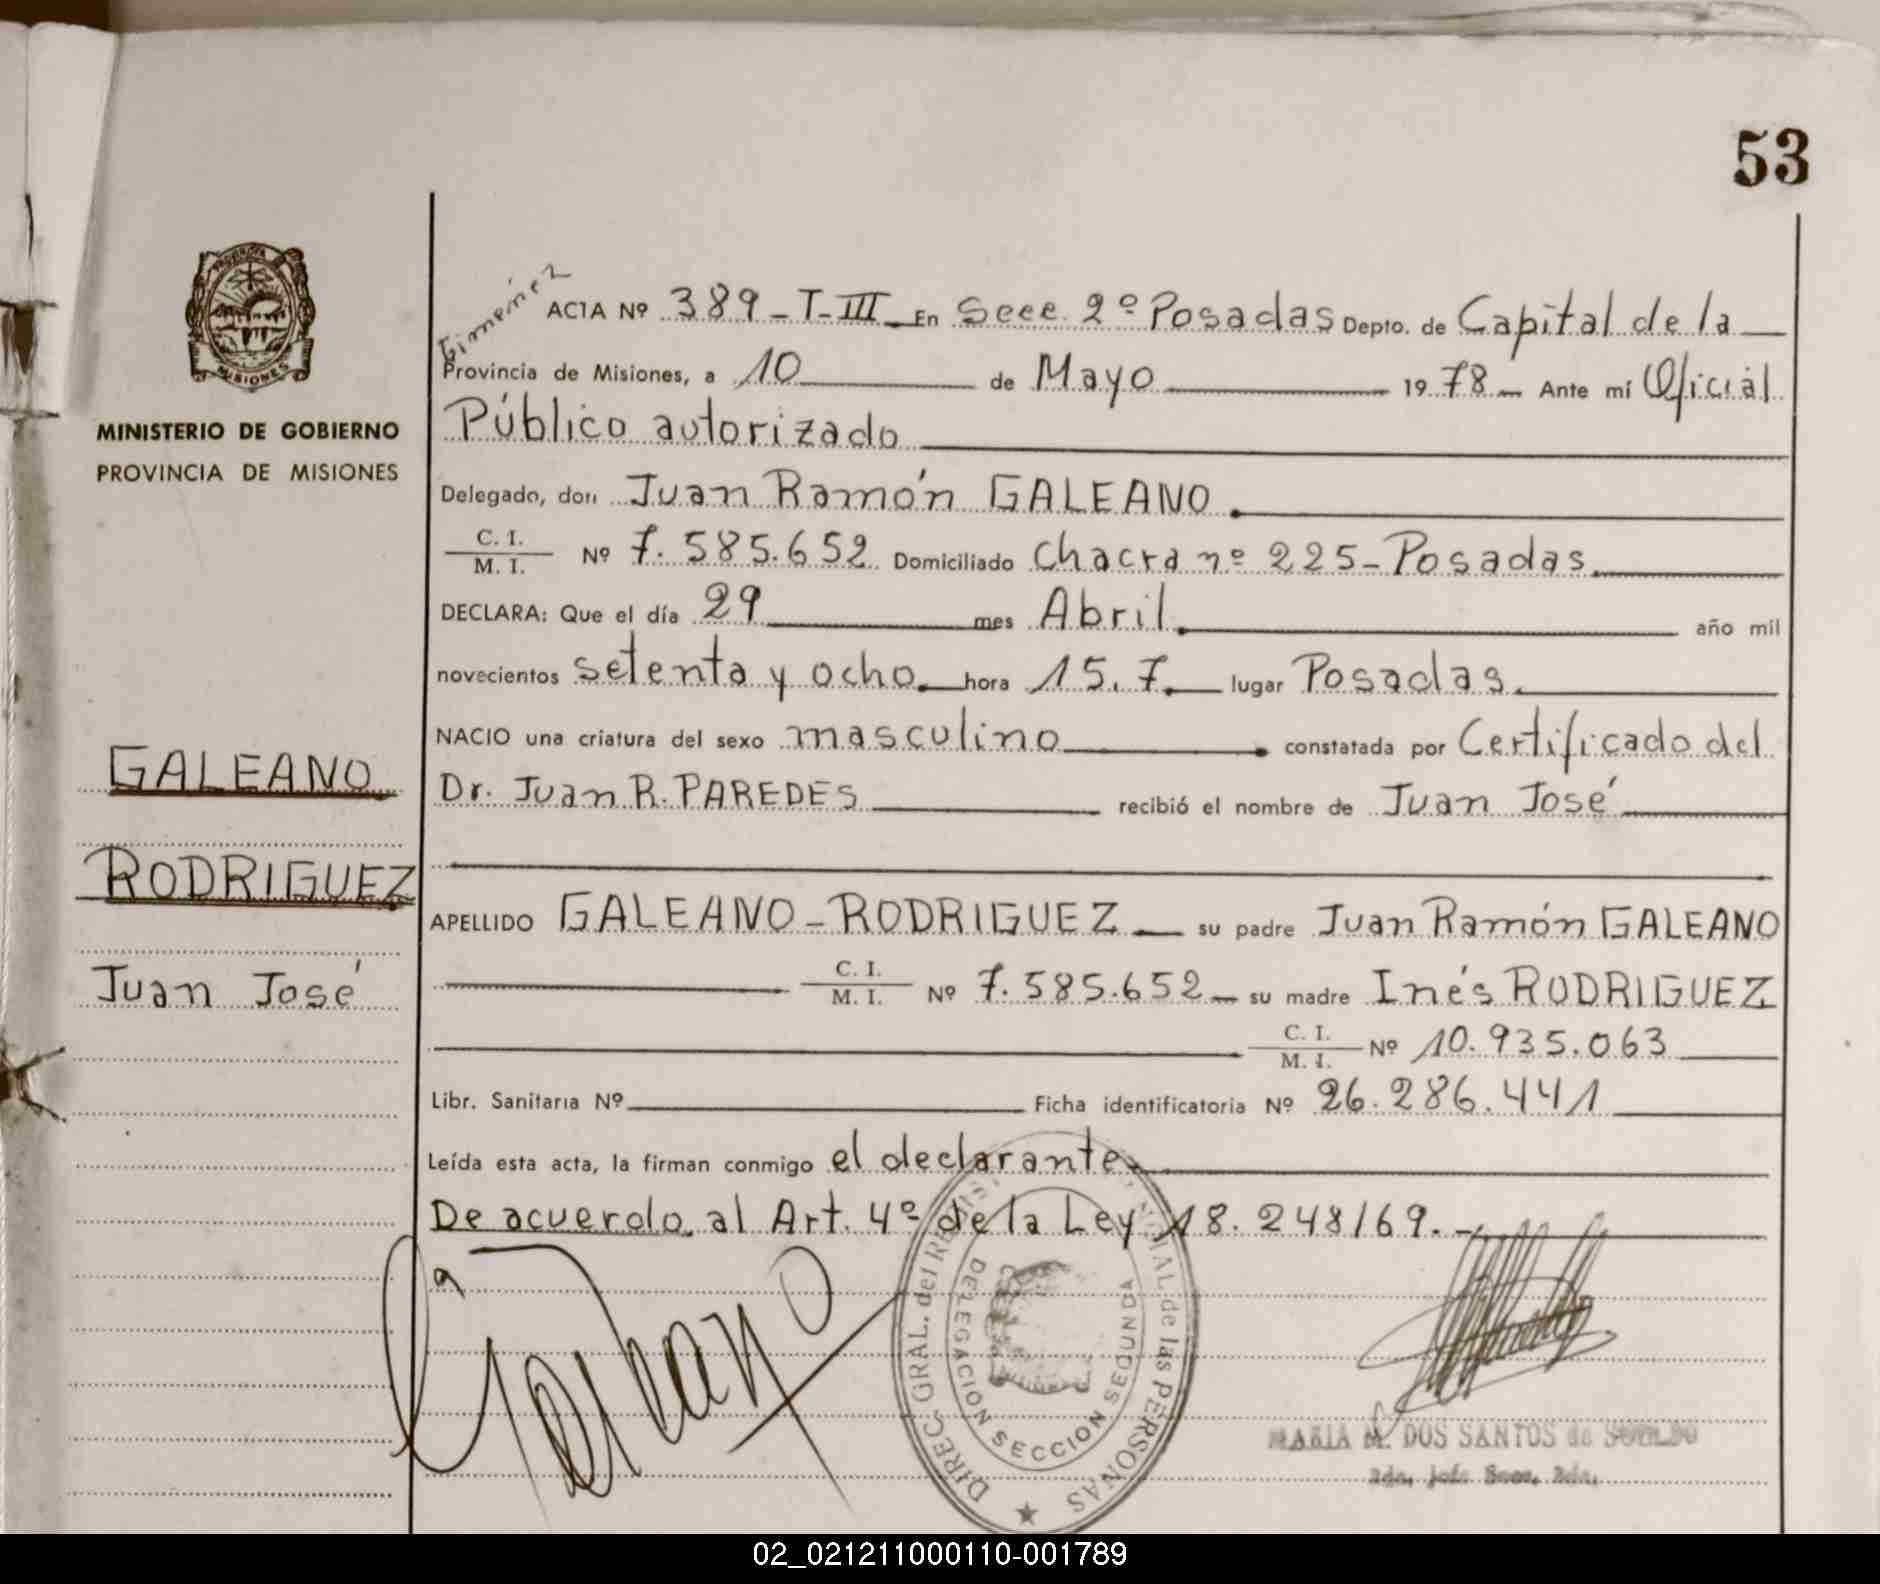 53
Gimenez
ACTA Nº 389-T-III- En Secc. 2º Posadas Depto. de Capital de la
Provincia de Misiones, a 10 de Mayo 1978- Ante mí Oficial
Público autorizado
Delegado, don Juan Ramón GALEANO.
C. I.
M. I. Nº 7.585.652 Domiciliado Chacra nº 225-Posadas.
DECLARA: Que el día 29 mes Abril. año mil
novecientos setenta y ocho. hora 15.7. lugar Posadas.
NACIO una criatura del sexo masculino constatada por Certificado del
Dr. Juan R. PAREDES recibió el nombre de Juan José
APELLIDO GALEANO-RODRIGUEZ su padre Juan Ramón GALEANO
C. I.
M. I. Nº 7.585.652- su madre Inés RODRIGUEZ
C. I.
M. I. Nº 10.935.063
Libr. Sanitaria Nº Ficha identificatoria Nº 26.286.441
Leída esta acta, la firman conmigo el declarante.
De acuerdo al Art. 4º de la Ley 18.248/69.-
MINISTERIO DE GOBIERNO
PROVINCIA DE MISIONES
MISIONES
GALEANO
RODRIGUEZ
Juan José
Galeano
DIREC. GRAL. del de las PERSONAS
DELEGACION SECCION SEGUNDA
MARIA M. DOS SANTOS de
02_021211000110-001789